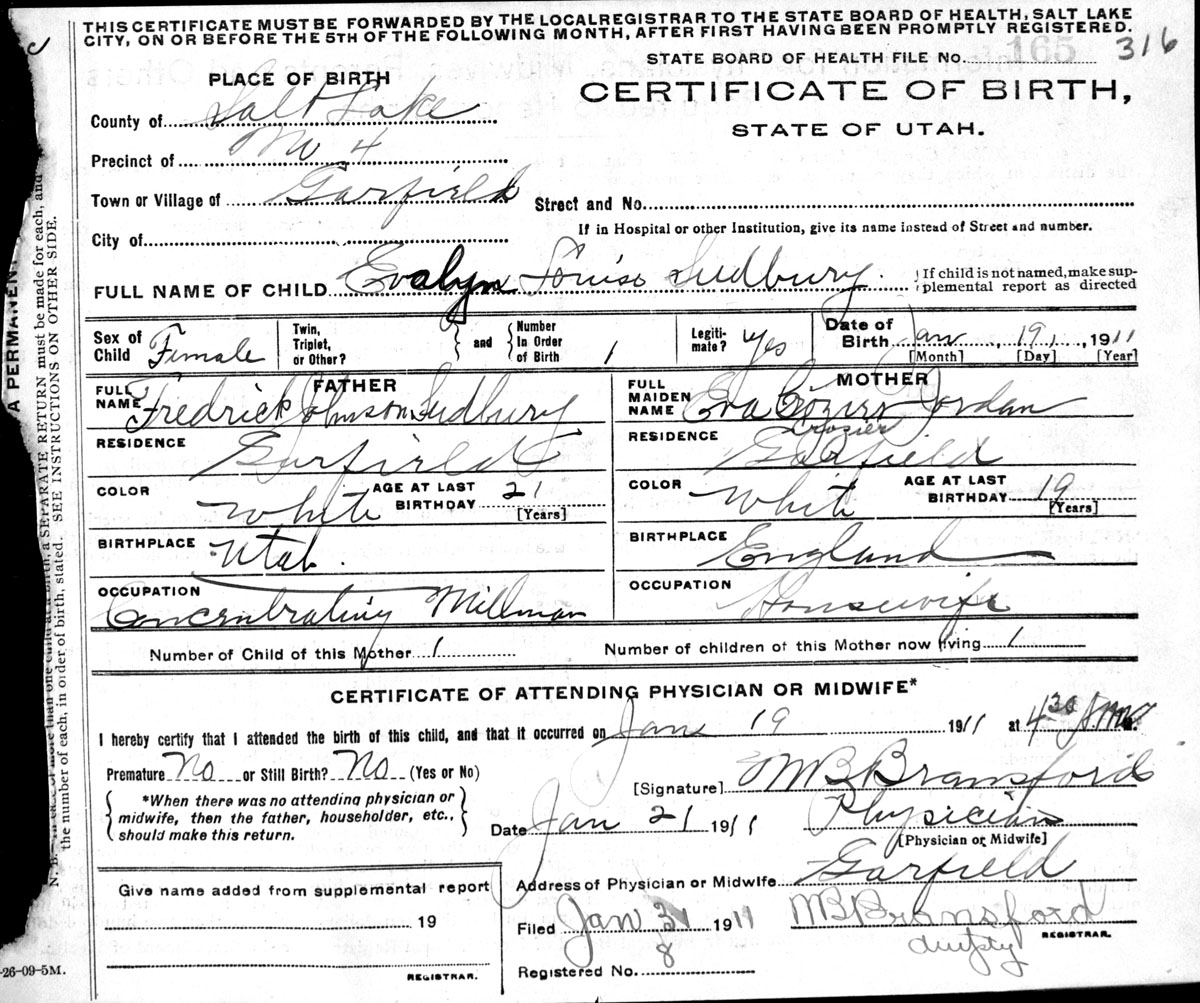 THIS CERTIFICATE MUST BE FORWARDED BY THE LOCAL REGISTRAR TO THE STATE BOARD OF HEALTH, SALT LAKE
CITY, ON OR BEFORE THE 5TH OF THE FOLLOWING MONTH, AFTER FIRST HAVING BEEN PROMPTLY REGISTERED.
STATE BOARD OF HEALTH FILE No. 165 316
PLACE OF BIRTH
CERTIFICATE OF BIRTH,
STATE OF UTAH.
County of Salt Lake
Precinct of No 4
Town or Village of Garfield
Street and No.
City of
If in Hospital or other Institution, give its name instead of Street and number.
FULL NAME OF CHILD Evalyn Louise Sudbury
If child is not named, make sup-
plemental report as directed
Sex of Child Female
Twin, Triplet, or Other?
and
Number In Order of Birth 1
Legiti-mate? Yes
Date of Birth Jan, 19, 1911
[Month] [Day] [Year]
FATHER
FULL NAME Fredrick Johnson Sudbury
MOTHER
FULL MAIDEN NAME Eva Jordan
Crozier
RESIDENCE Garfield
RESIDENCE Garfield
COLOR White
AGE AT LAST BIRTHDAY 21
[Years]
COLOR White
AGE AT LAST BIRTHDAY 19
[Years]
BIRTHPLACE Utah.
BIRTHPLACE England
OCCUPATION Concentrating Millman
OCCUPATION Housewife
Number of Child of this Mother 1
Number of children of this Mother now living 1
CERTIFICATE OF ATTENDING PHYSICIAN OR MIDWIFE*
I hereby certify that I attended the birth of this child, and that it occurred on Jan 19 1911 at 4 30
Premature No or Still Birth? No (Yes or No)
[Signature] MB Bransford
*When there was no attending physician or
midwife, then the father, householder, etc.,
should make this return.
Date Jan 21 1911
Physician
[Physician or Midwife]
Address of Physician or Midwife Garfield
Give name added from supplemental report
19
REGISTRAR.
Filed Jan 31 1911
8
MB Bransford
REGISTRAR.
Registered No.
-26-09-5M.
A PERMANENT
a SEPARATE RETURN must be made for each, and
the number of each, in order of birth, stated. SEE INSTRUCTIONS ON OTHER SIDE.